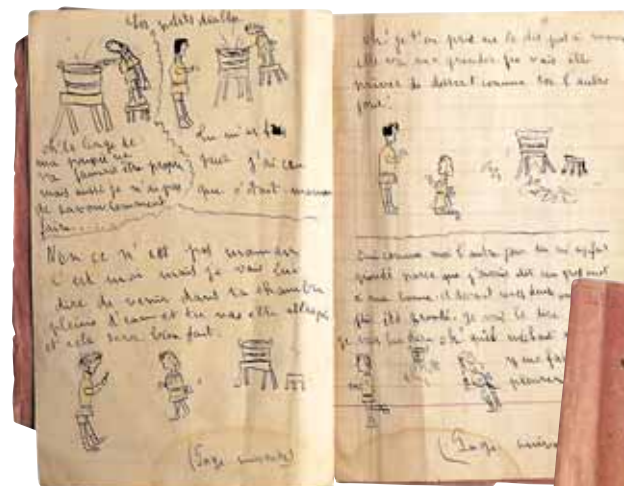 Les petits diables
oh le linge de
ma poupée ne
va jamais être propre
mais aussi je n'ai pas
de savon comment
faire...
Tu m'as fait
peur j'ai cru
que c'était maman
Non ce n'est pas maman
c'est moi mais je vais lui
dire de venir dans ta chambre
pleine d'eau et tu vas être attrapée
et cela sera bien fait.
(Page suivante)
oh! je t'en prie ne le dis pas à maman
elle va me gronder
priver de dessert comme l'autre
jour!
Oui comme moi l'autre jour tu m'as fait
gronder parce que j'avais dit un gros mot
à ma bonne
Je vais le dire
je vais lui dire oh! qu'il méchant
pleurer
(Page suivante